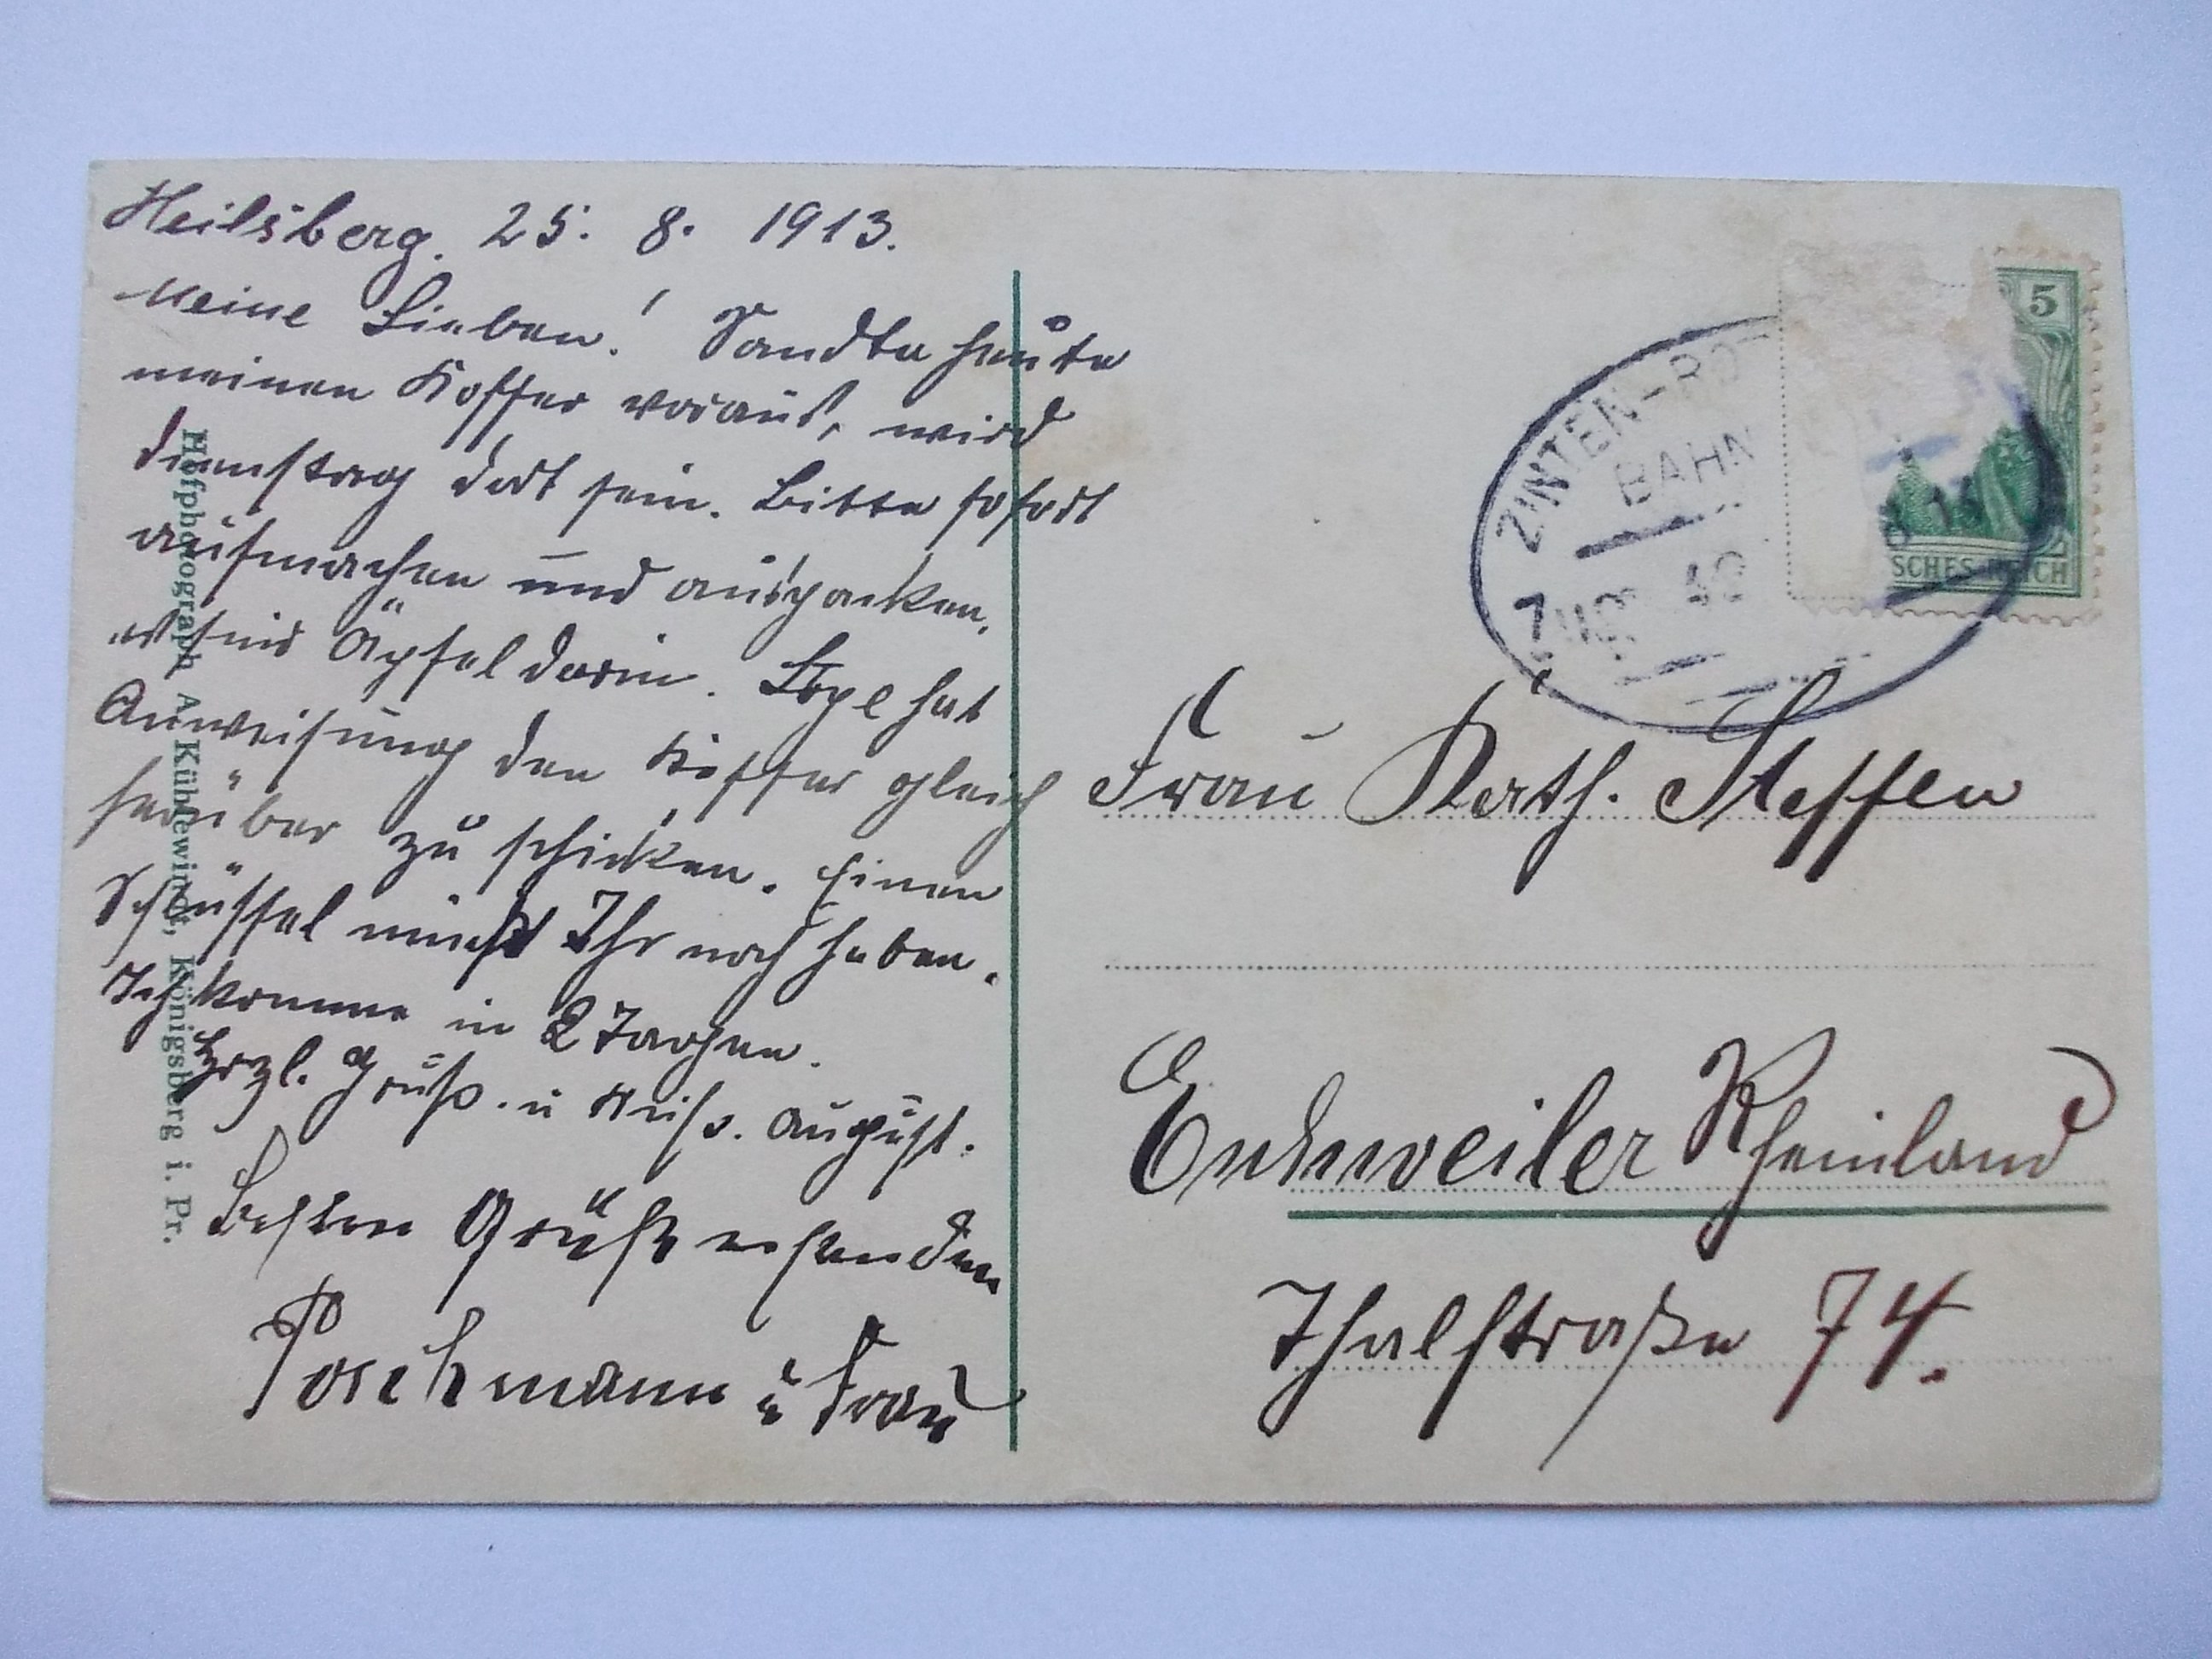 Heilsberg. 25. 8. 1913.
Meine Lieben! Sandte heute
meinen Koffer voraus, wird
dienstag dort sein. Bitte sofort
aufmachen und auspacken,
es sind Äpfel darin. hat
Anweisung den Koffer gleich
herüber zu schicken. Einen
Schlüssel müßt Ihr noch haben.
Ich komme in 2 Tagen.
Hrzl. Gruß. u Küße. August.
Besten Grüße senden
Poschmann u Frau
Hofphotograph A. Kühlewindt, Königsberg i. Pr.
5
ZINTEN-ROT
BAHN
ZUG 40
SCHES REICH
Frau Kath. Steffen
Eschweiler Rheinland
Thalstraße 74.